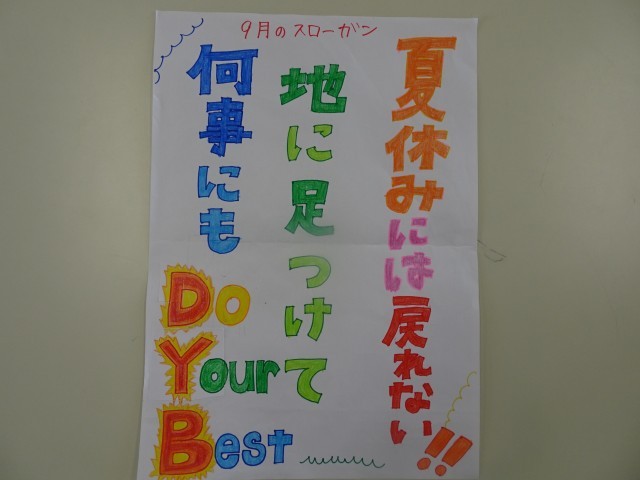 9月のスローガン
夏休みには戻れない!!
地に足つけて
何事にも
Do
Your
Best